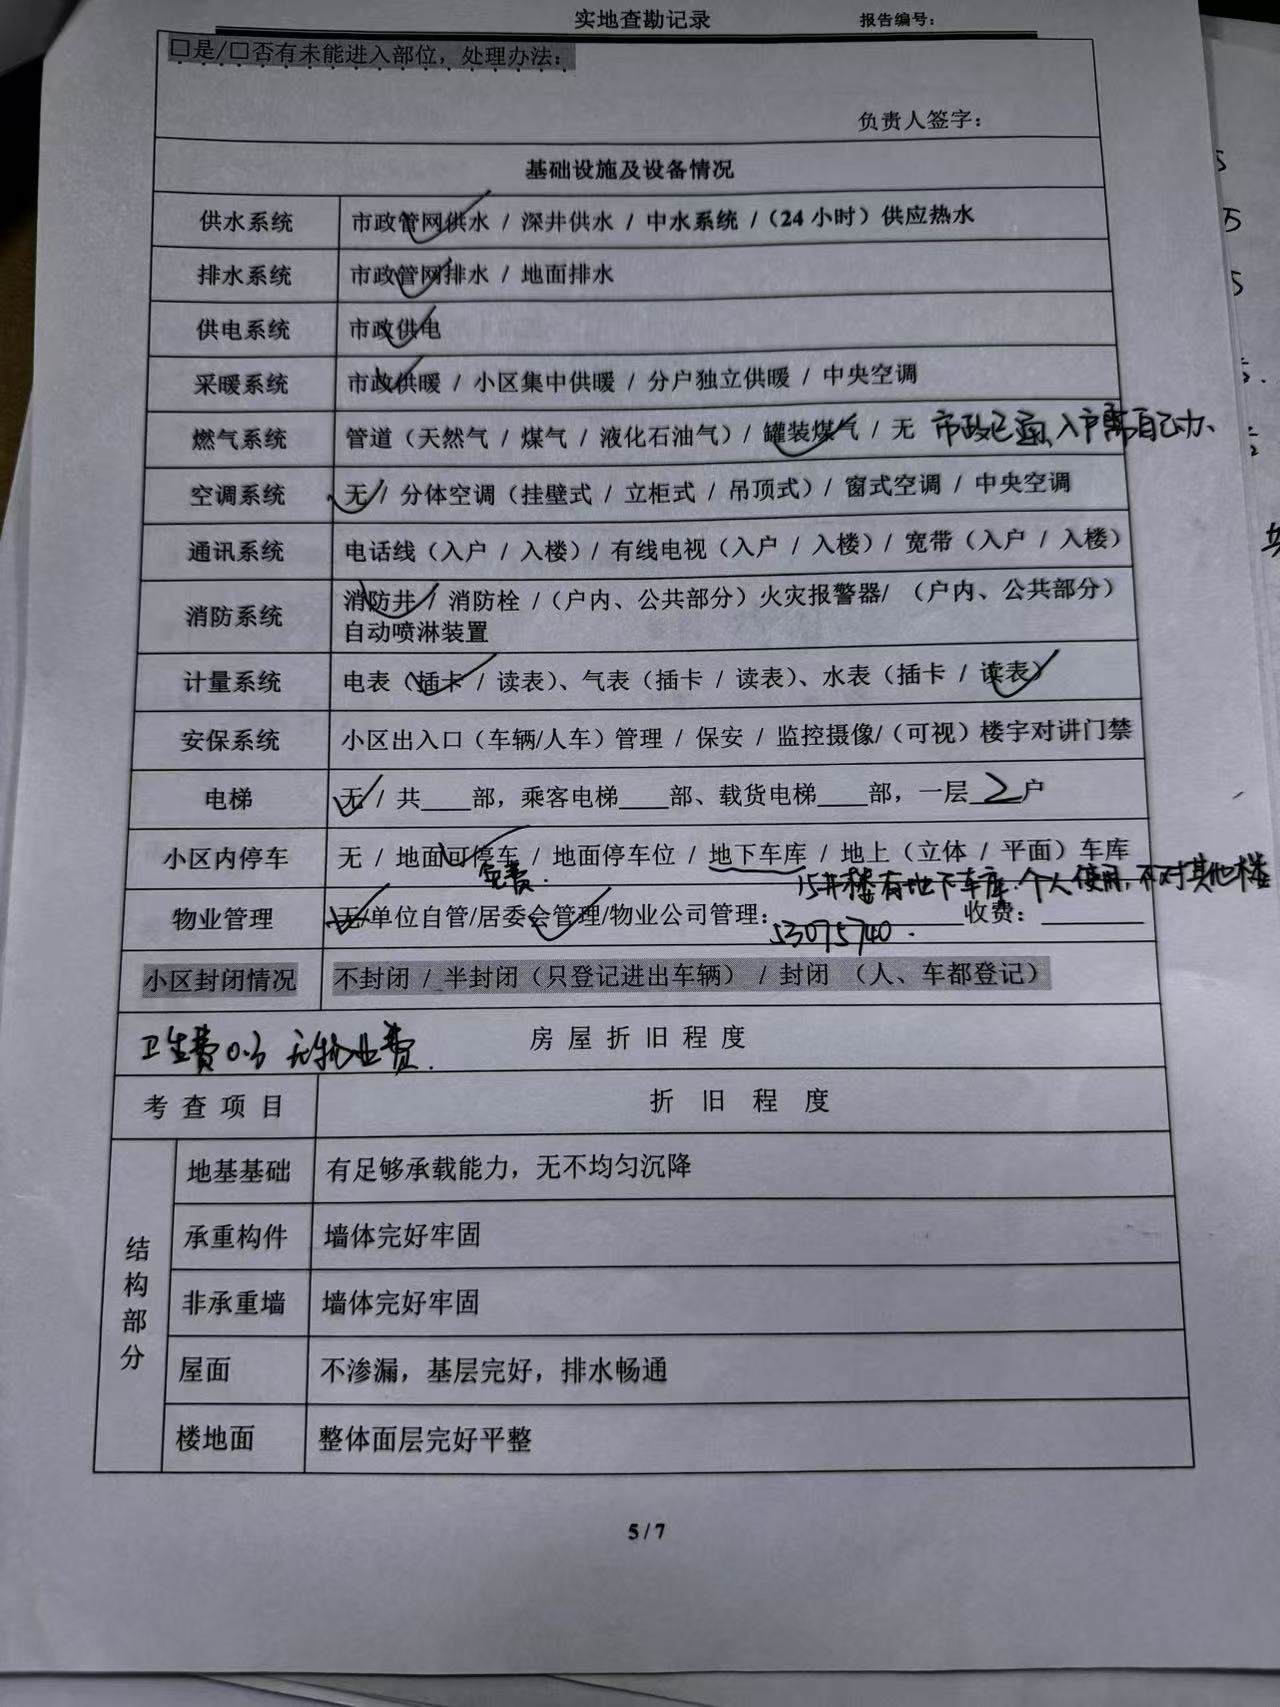 实地查勘记录 报告编号：
□是/□否有未能进入部位，处理办法：
负责人签字：
基础设施及设备情况
供水系统 市政管网供水 / 深井供水 / 中水系统 /（24 小时）供应热水
排水系统 市政管网排水 / 地面排水
供电系统 市政供电
采暖系统 市政供暖 / 小区集中供暖 / 分户独立供暖 / 中央空调
燃气系统 管道（天然气 / 煤气 / 液化石油气）/ 罐装煤气 / 无 市政已通、入户需自己办、
空调系统 无 / 分体空调（挂壁式 / 立柜式 / 吊顶式）/ 窗式空调 / 中央空调
通讯系统 电话线（入户 / 入楼）/ 有线电视（入户 / 入楼）/ 宽带（入户 / 入楼）
消防系统 消防井 / 消防栓 /（户内、公共部分）火灾报警器/ （户内、公共部分）
自动喷淋装置
计量系统 电表（插卡 / 读表）、气表（插卡 / 读表）、水表（插卡 / 读表）
安保系统 小区出入口（车辆/人车）管理 / 保安 / 监控摄像/（可视）楼宇对讲门禁
电梯 无 / 共____部，乘客电梯____部、载货电梯____部，一层 2 户
小区内停车 无 / 地面可停车 / 地面停车位 / 地下车库 / 地上（立体 / 平面）车库
免费. 15#楼有地下车库.个人使用,不对其他楼
物业管理 无/单位自管/居委会管理/物业公司管理：________收费：________
53075740.
小区封闭情况 不封闭 / 半封闭（只登记进出车辆） / 封闭 （人、车都登记）
卫生费0.3 无物业费. 房屋折旧程度
考查项目 折旧程度
结构部分
地基基础 有足够承载能力，无不均匀沉降
承重构件 墙体完好牢固
非承重墙 墙体完好牢固
屋面 不渗漏，基层完好，排水畅通
楼地面 整体面层完好平整
5 / 7